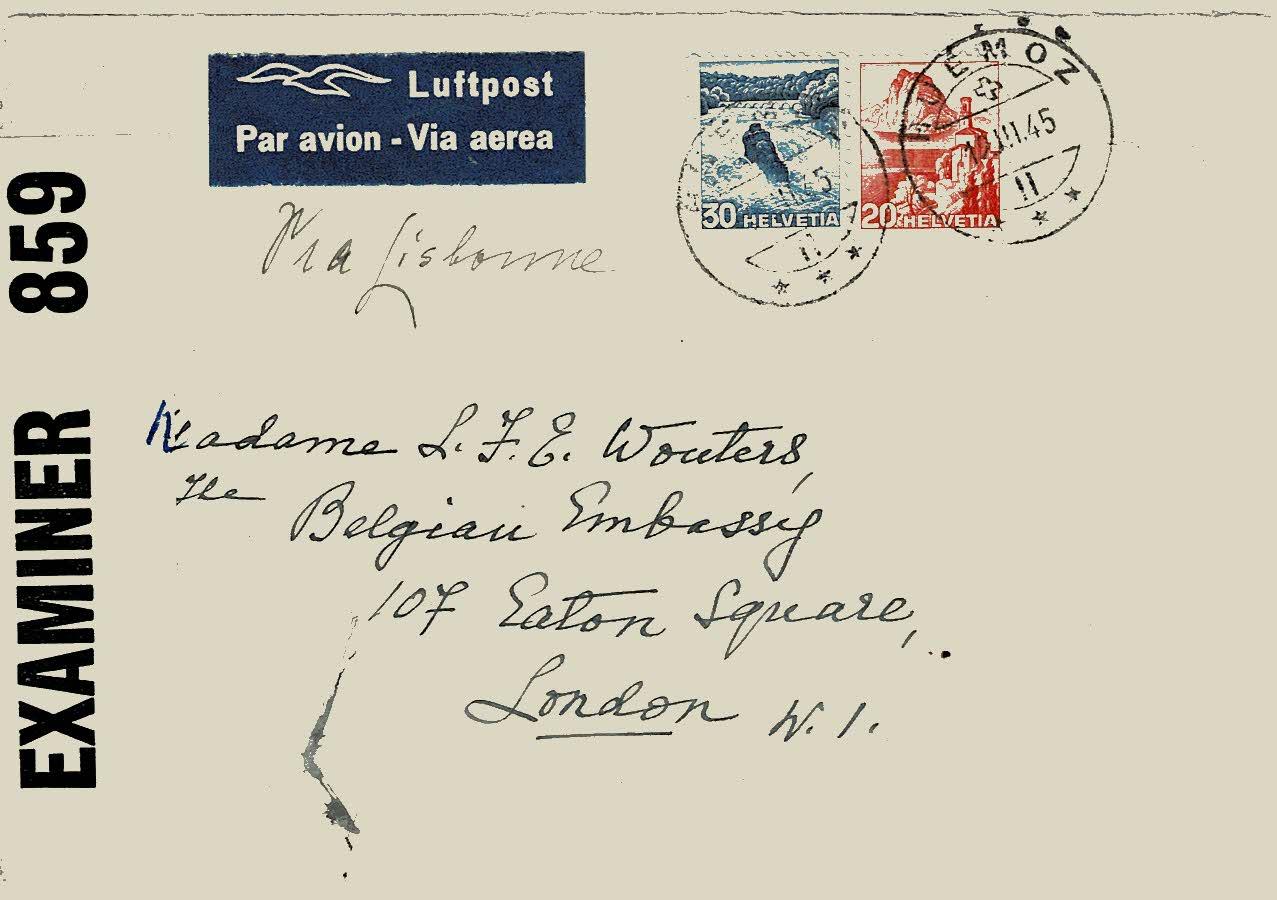 Luftpost
Par avion - Via aerea
Via Lisbonne
30 HELVETIA
20 HELVETIA
HUEMOZ
12.III.45
11
11
EXAMINER 859
Madame L. F. E. Wouters,
The Belgian Embassy
107 Eaton Square,
London W. 1.